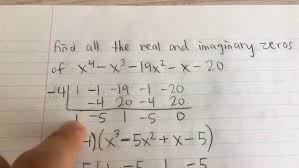 find all the real and imaginary zeros
of x⁴ - x³ - 19x² - x - 20
-4| 1 -1 -19 -1 -20
-4 20 -4 20
1 -5 1 -5 0
-4)(x³ - 5x² + x - 5)
-5 1 -5